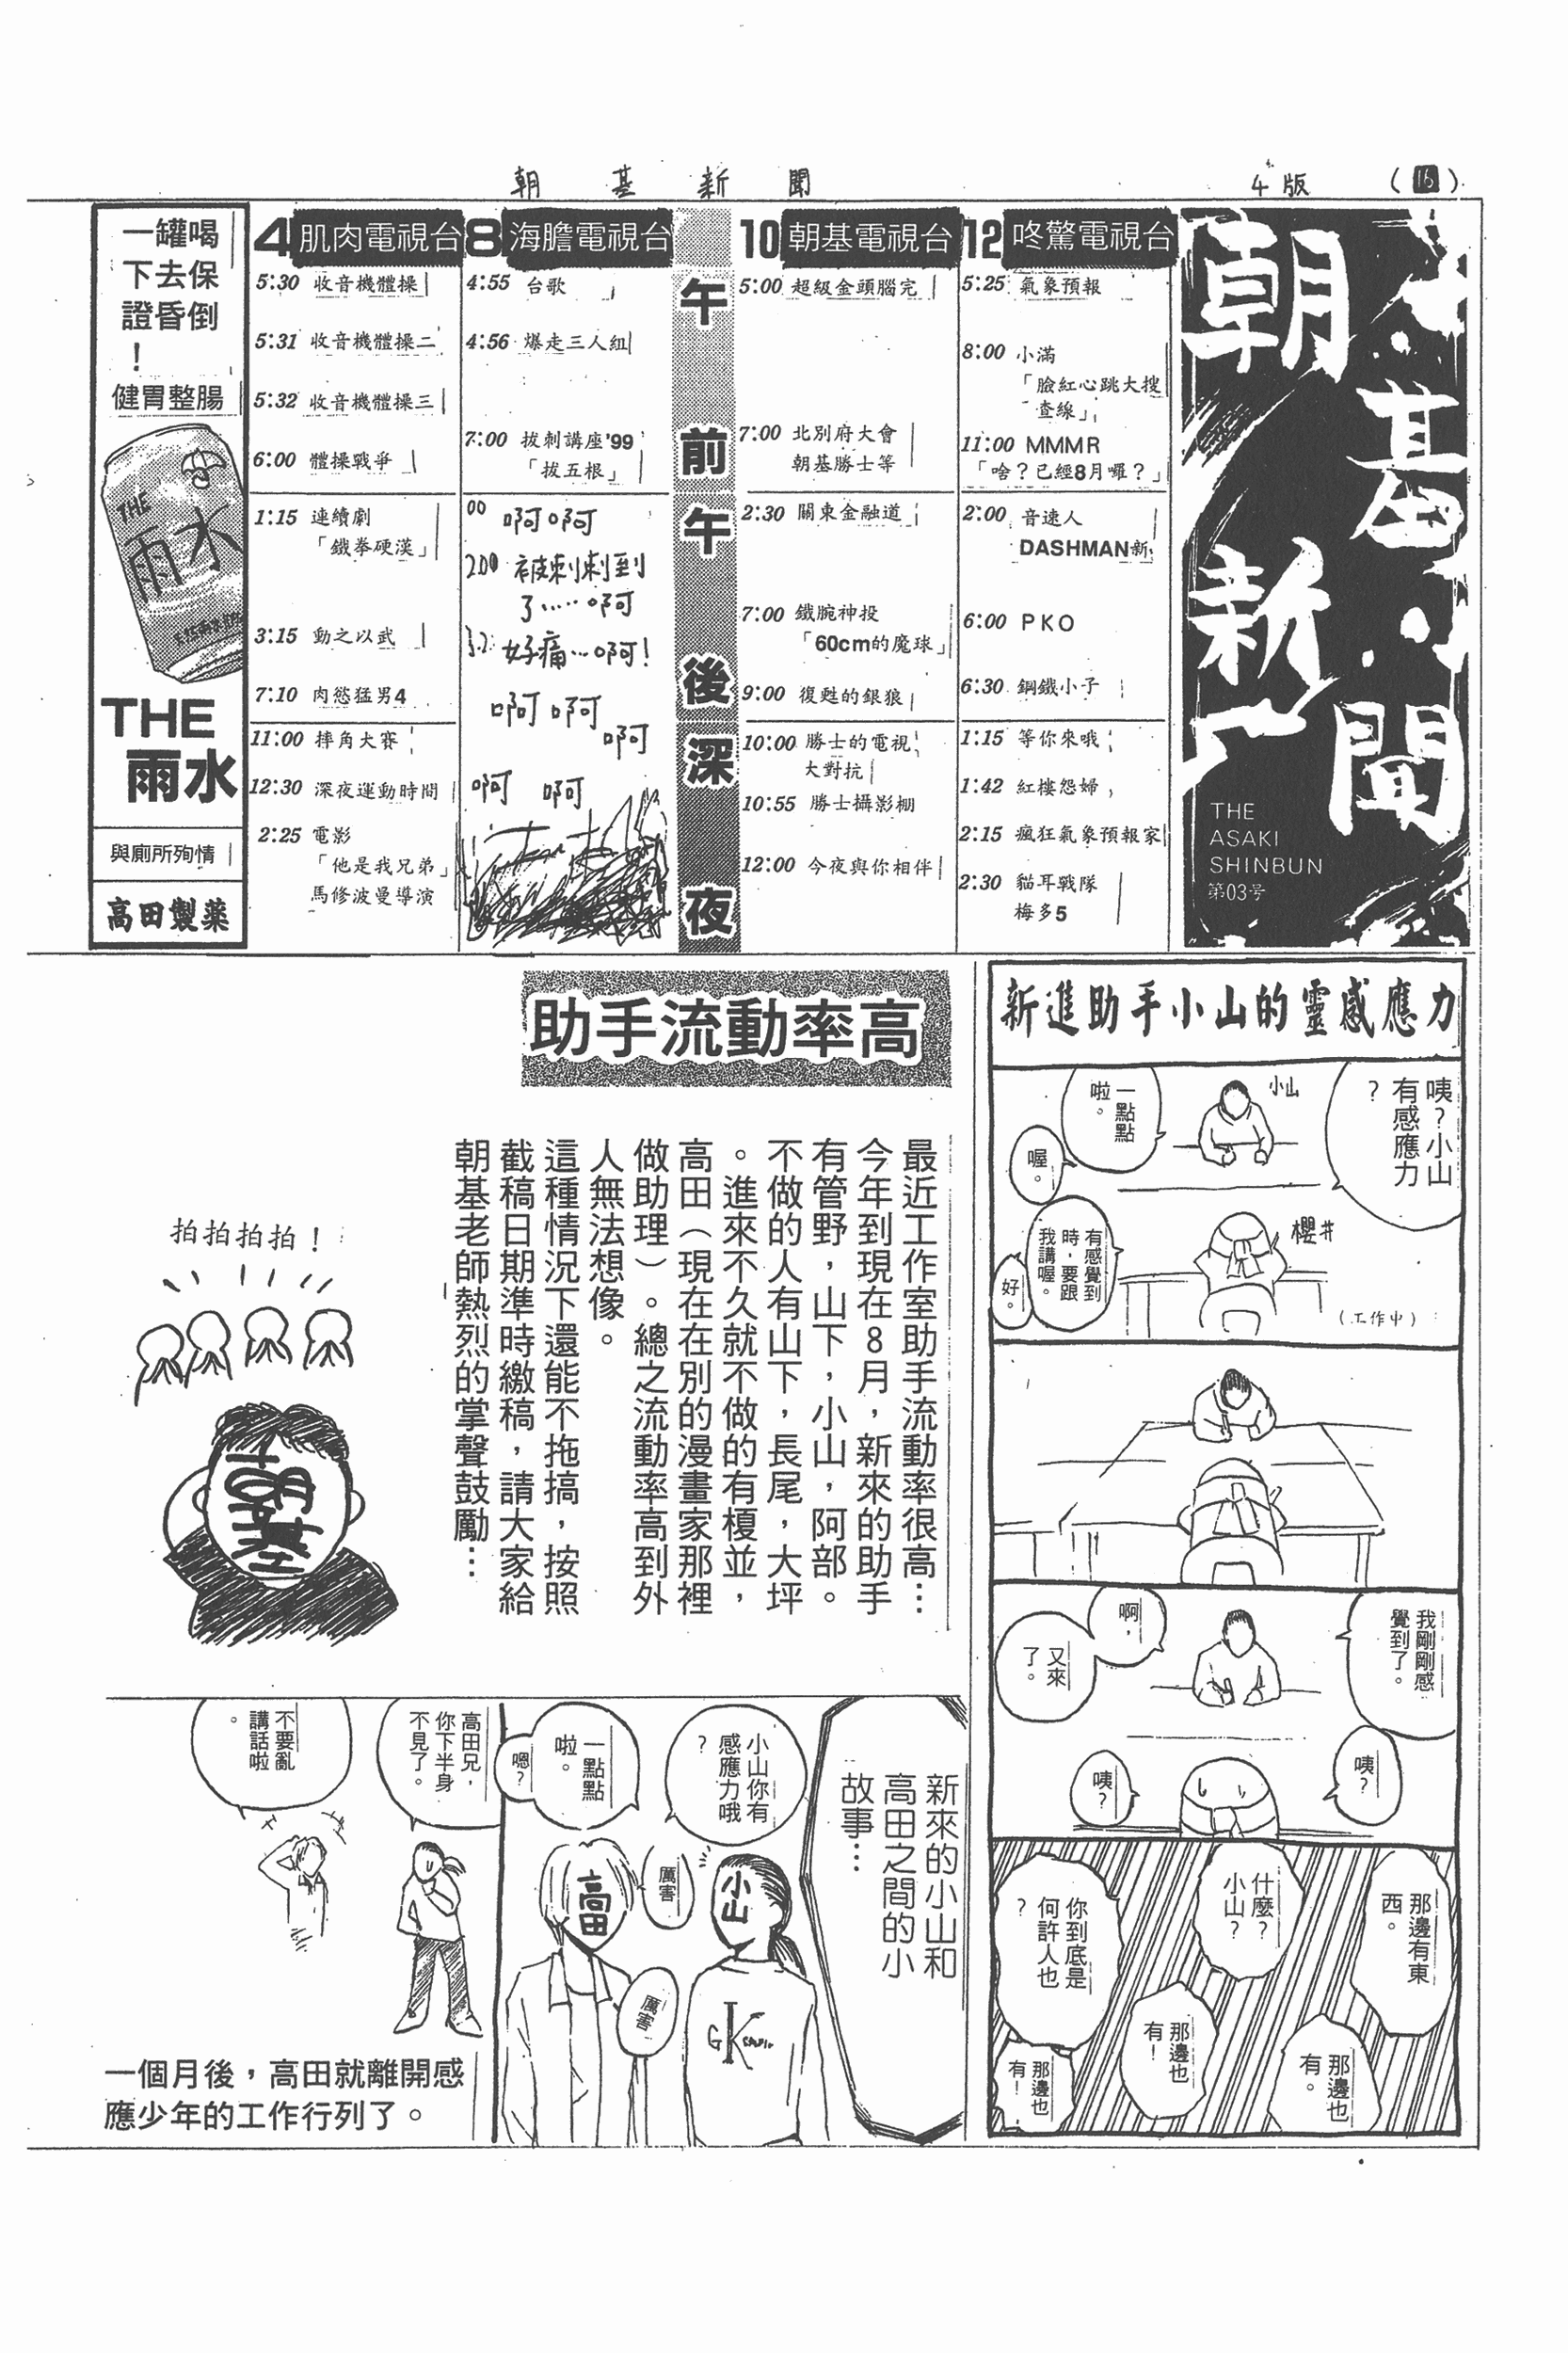 朝基新聞
4版
(16)
朝基新聞
THE
ASAKI
SHINBUN
第03号
12 咚驚電視台
5:25 氣象預報
8:00 小滿
「臉紅心跳大搜
查線」
11:00 MMMR
「啥？已經8月囉？」
2:00 音速人
DASHMAN新
6:00 PKO
6:30 鋼鐵小子
1:15 等你來哦
1:42 紅樓怨婦
2:15 瘋狂氣象預報家
2:30 貓耳戰隊
梅多5
10 朝基電視台
5:00 超級金頭腦完
7:00 北別府大會
朝基勝士等
2:30 關東金融道
7:00 鐵腕神投
「60cm的魔球」
9:00 復甦的銀狼
10:00 勝士的電視
大對抗
10:55 勝士攝影棚
12:00 今夜與你相伴
午前
午後
深夜
8 海膽電視台
4:55 台歌
4:56 爆走三人組
7:00 拔刺講座'99
「拔五根」
00 啊啊
2:00 被刺刺到
了……啊
好痛…啊！
啊啊
啊
啊 啊
4 肌肉電視台
5:30 收音機體操
5:31 收音機體操二
5:32 收音機體操三
6:00 體操戰爭
1:15 連續劇
「鐵拳硬漢」
3:15 動之以武
7:10 肉慾猛男4
11:00 摔角大賽
12:30 深夜運動時間
2:25 電影
「他是我兄弟」
馬修波曼導演
一罐喝
下去保
證昏倒
！
健胃整腸
THE
雨水
THE
雨水
與廁所殉情
高田製薬
新進助手小山的靈感應力
咦？小山
有感應力
？
小山
一點點
啦。
喔。
櫻井
有感覺到
時，要跟
我講喔。
好。
（工作中）
我剛剛感
覺到了。
啊，
又來
了。
咦？
咦？
那邊有東
西。
什麼？
小山？
你到底是
何許人也
？
那邊也
有。
那邊也
有！
那邊也
有！
助手流動率高
最近工作室助手流動率很高…
今年到現在8月，新來的助手
有管野，山下，小山，阿部。
不做的人有山下，長尾，大坪
。進來不久就不做的有榎並，
高田（現在在別的漫畫家那裡
做助理）。總之流動率高到外
人無法想像。
這種情況下還能不拖搞，按照
截稿日期準時繳稿，請大家給
朝基老師熱烈的掌聲鼓勵…
拍拍拍拍！
朝基
新來的小山和
高田之間的小
故事…
小山你有
感應力哦
？
一點點
啦。
嗯？
厲害
小山
高田
厲害
GK
高田兄，
你下半身
不見了。
不要亂
講話啦
。
一個月後，高田就離開感
應少年的工作行列了。